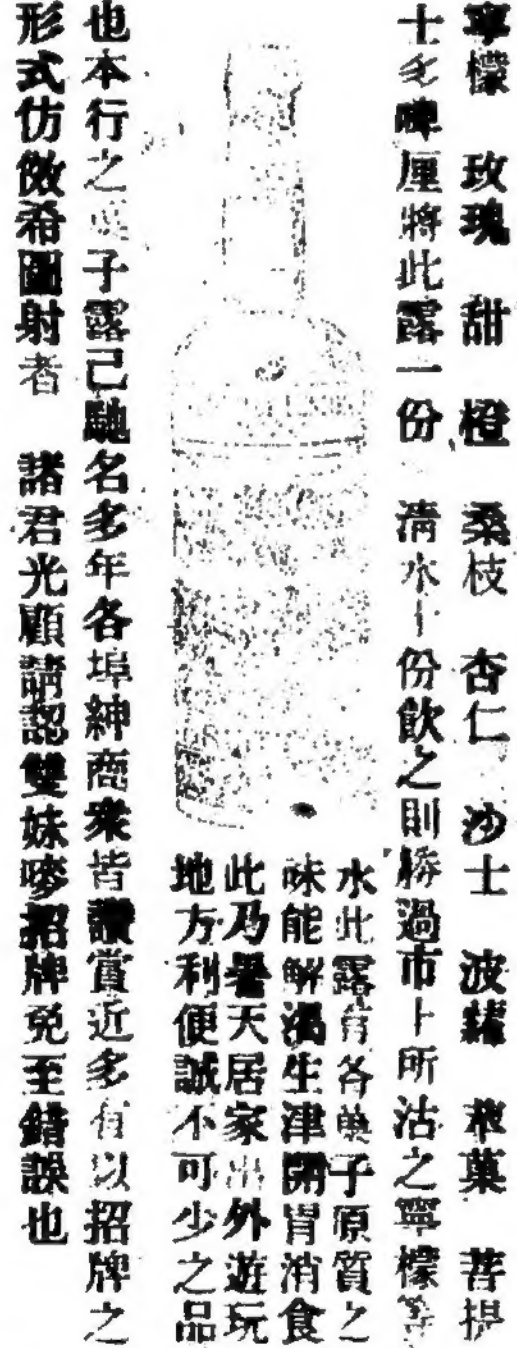 寧檬 玫瑰 甜橙 桑枝 杏仁 沙士 波蘿 苹菓 菩提
士多啤厘將此露一份 清水十份飲之則勝過市上所沽之寧檬等
水此露有各菓子原質之
味能解渴生津開胃消食
此乃暑天居家出外遊玩
地方利便誠不可少之品
也本行之菓子露已馳名多年各埠紳商衆皆讚賞近多有以招牌之
形式仿傚希圖射者 諸君光顧請認雙妹嘜招牌免至錯誤也